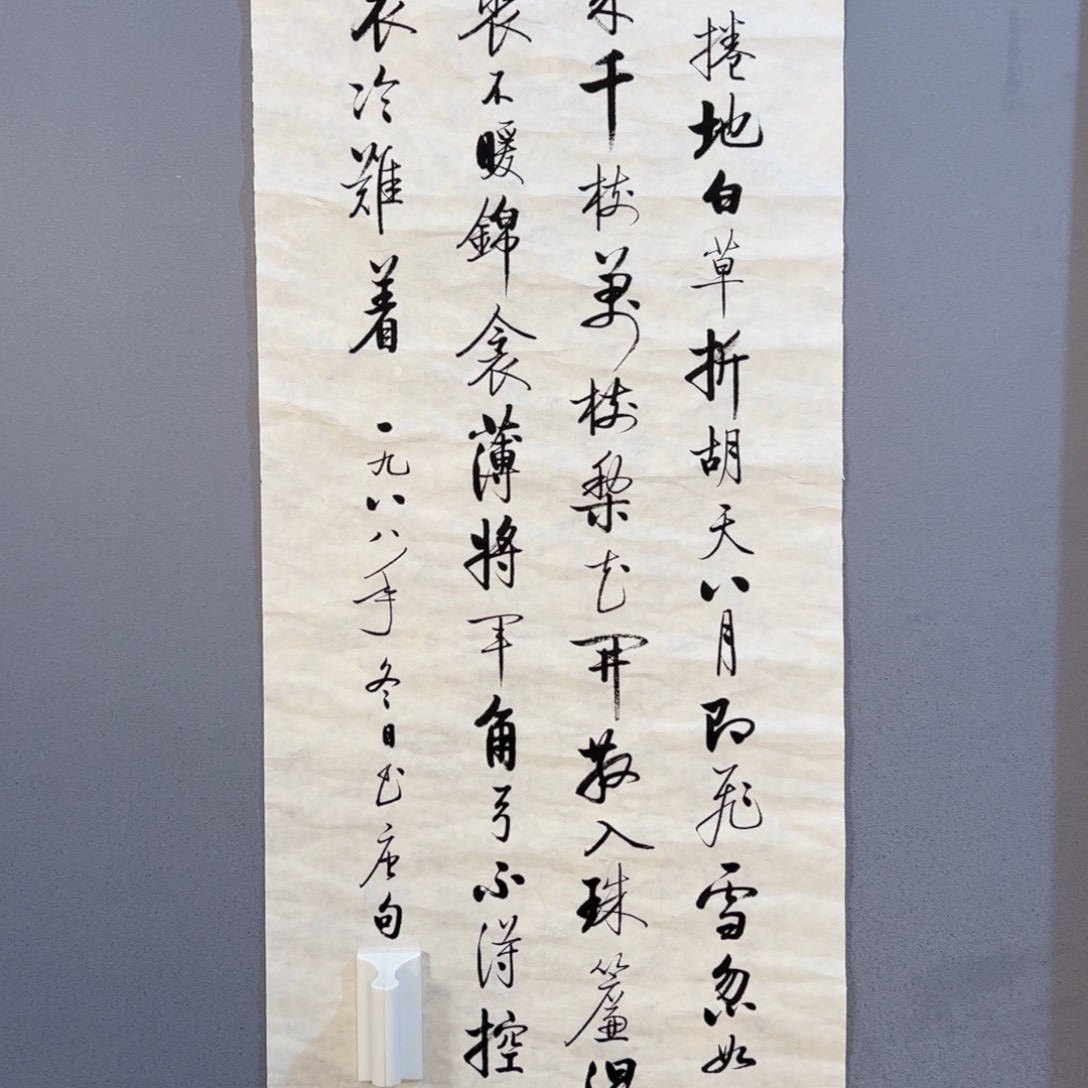 捲地白草折胡天八月即飛雪忽如
來千樹萬樹梨花開散入珠簾濕
裘不暖錦衾薄將軍角弓不得控
衣冷難着 一九八八年冬日書唐句